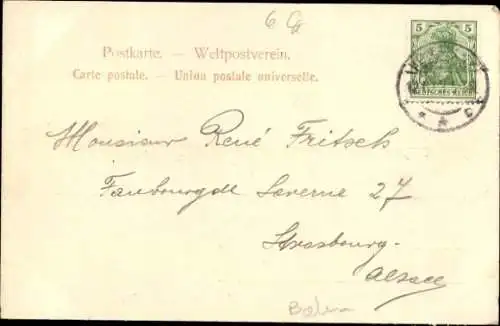 6
5
DEUTSCHES REICH
Postkarte. — Weltpostverein.
Carte postale. — Union postale universelle.
Monsieur René Fritsch
Faubourg de Saverne 27
Strasbourg.
Alsace